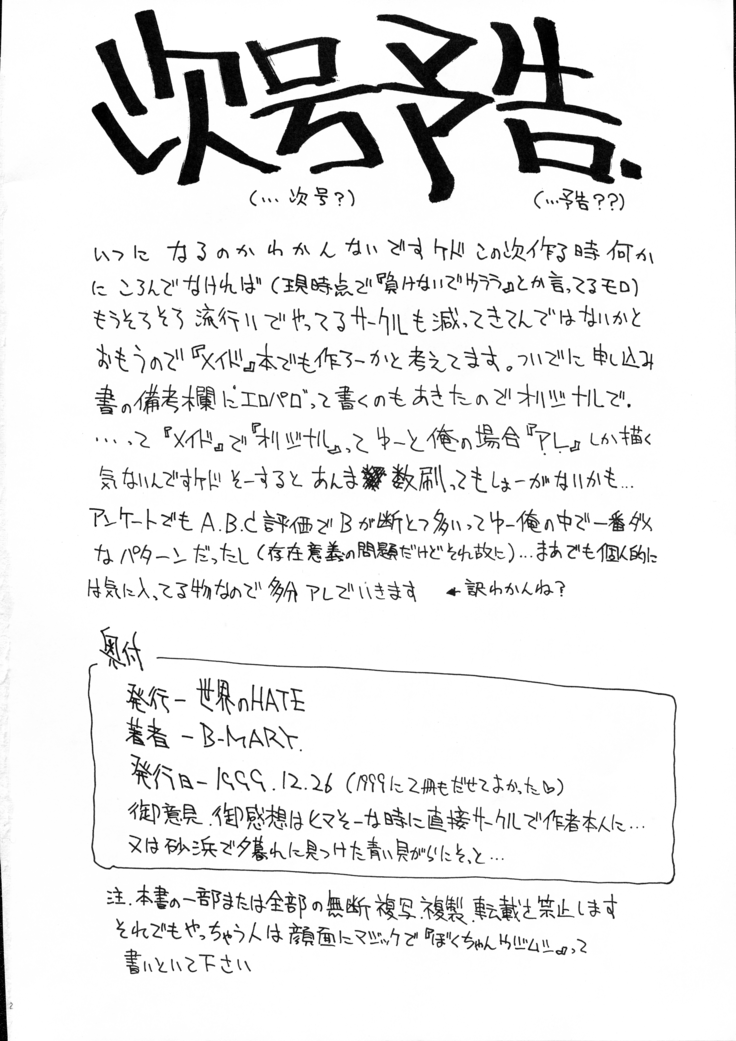 次号予告.
(…次号?)　(…予告??)
いつに なるのか わかんないですケド この次作る時 何か
に ころんでなければ (現時点で『負けないでウララ』とか言ってるモロ)
もうそろそろ 流行りでやってるサークルも減ってきてんではないかと
おもうので『メイド』本でも作ろーかと考えてます。ついでに 申し込み
書の備考欄に“エロパロ”って書くのもあきたので オリジナルで.
…って『メイド』で『オリジナル』ってゆーと 俺の場合『アレ』しか描く
気ないんですケド そーすると あんま 数刷ってもしょーがないかも…
アンケートでも A.B.C評価で Bが断とつ多いってゆー俺の中で一番ダメ
な パターンだったし (存在意義の問題だけどそれ故に)…まあでも個人的に
は気に入ってる物なので 多分 アレでいきます　← 訳わかんね?
奥付
発行ー 世界のHATE
著者 ーB-MARY.
発行日ー1999.12.26 (1999に2冊もだせてよかった♡)
御意見.御感想はヒマそーな時に直接サークルで作者本人に…
又は砂浜で夕暮れに見つけた青い貝がらにそっと…
注.本書の一部または全部の無断 複写.複製.転載を禁止します
それでもやっちゃう人は 顔面にマジックで『ぼくちゃん』って
書いといて下さい
2